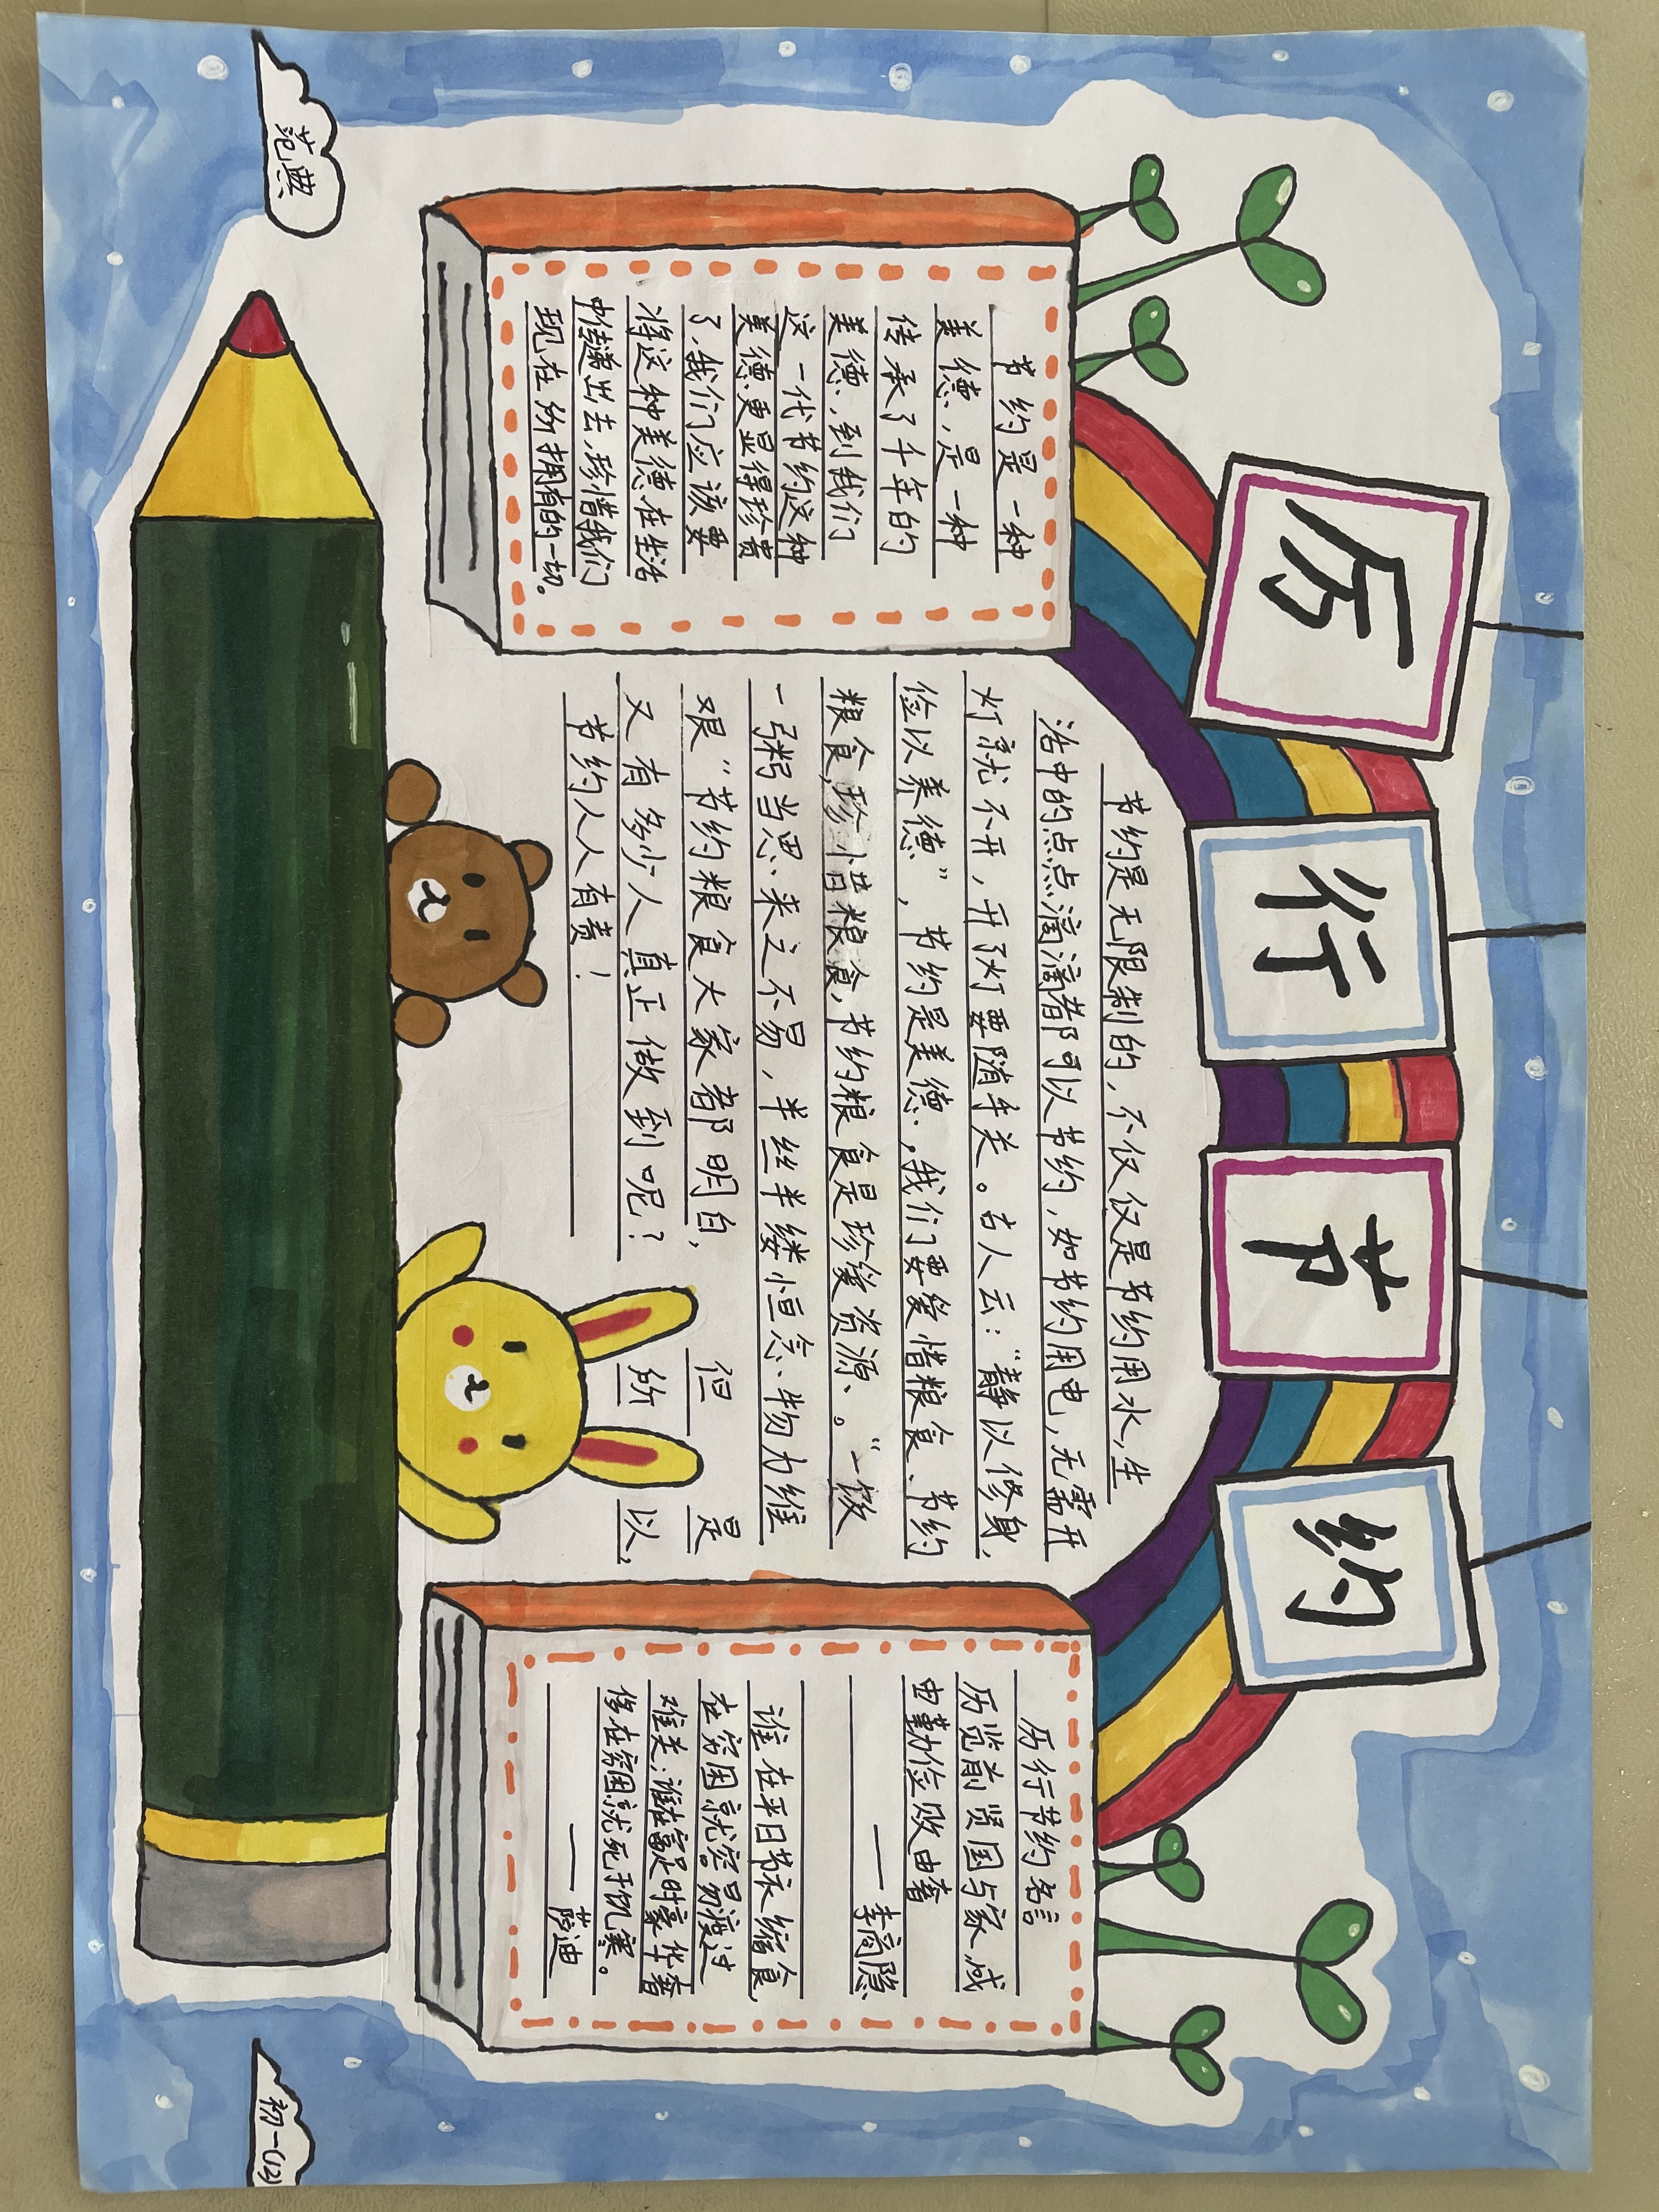 厉行节约
节约是一种
美德,是一种
传承了千年的
美德,到我们
这一代节约这种
美德更显得珍贵
了,我们应该要
将这种美德在生活
中传递出去,珍惜我们
现在所拥有的一切。
节约是无限制的,不仅仅是节约用水,生
活中的点点滴滴都可以节约,如节约用电,无需开
灯就不开,开了灯要随手关。古人云:“静以修身,
俭以养德”,节约是美德,我们要爱惜粮食、节约
粮食,珍惜粮食,节约粮食是珍爱资源、。“一饭
一粥当思、来之不易,半丝半缕恒念、物力维
艰“节约粮食大家都明白,但是
又有多少人真正做到呢?所以,
节约人人有责!
历行节约名言
历览前贤国与家成
由勤俭败由奢
——李商隐
谁在平日节衣缩食,
在穷困就容易渡过
难关;谁在富足时豪华奢
侈在穷困就死于饥寒。
——萨迪
范典
初一(12)